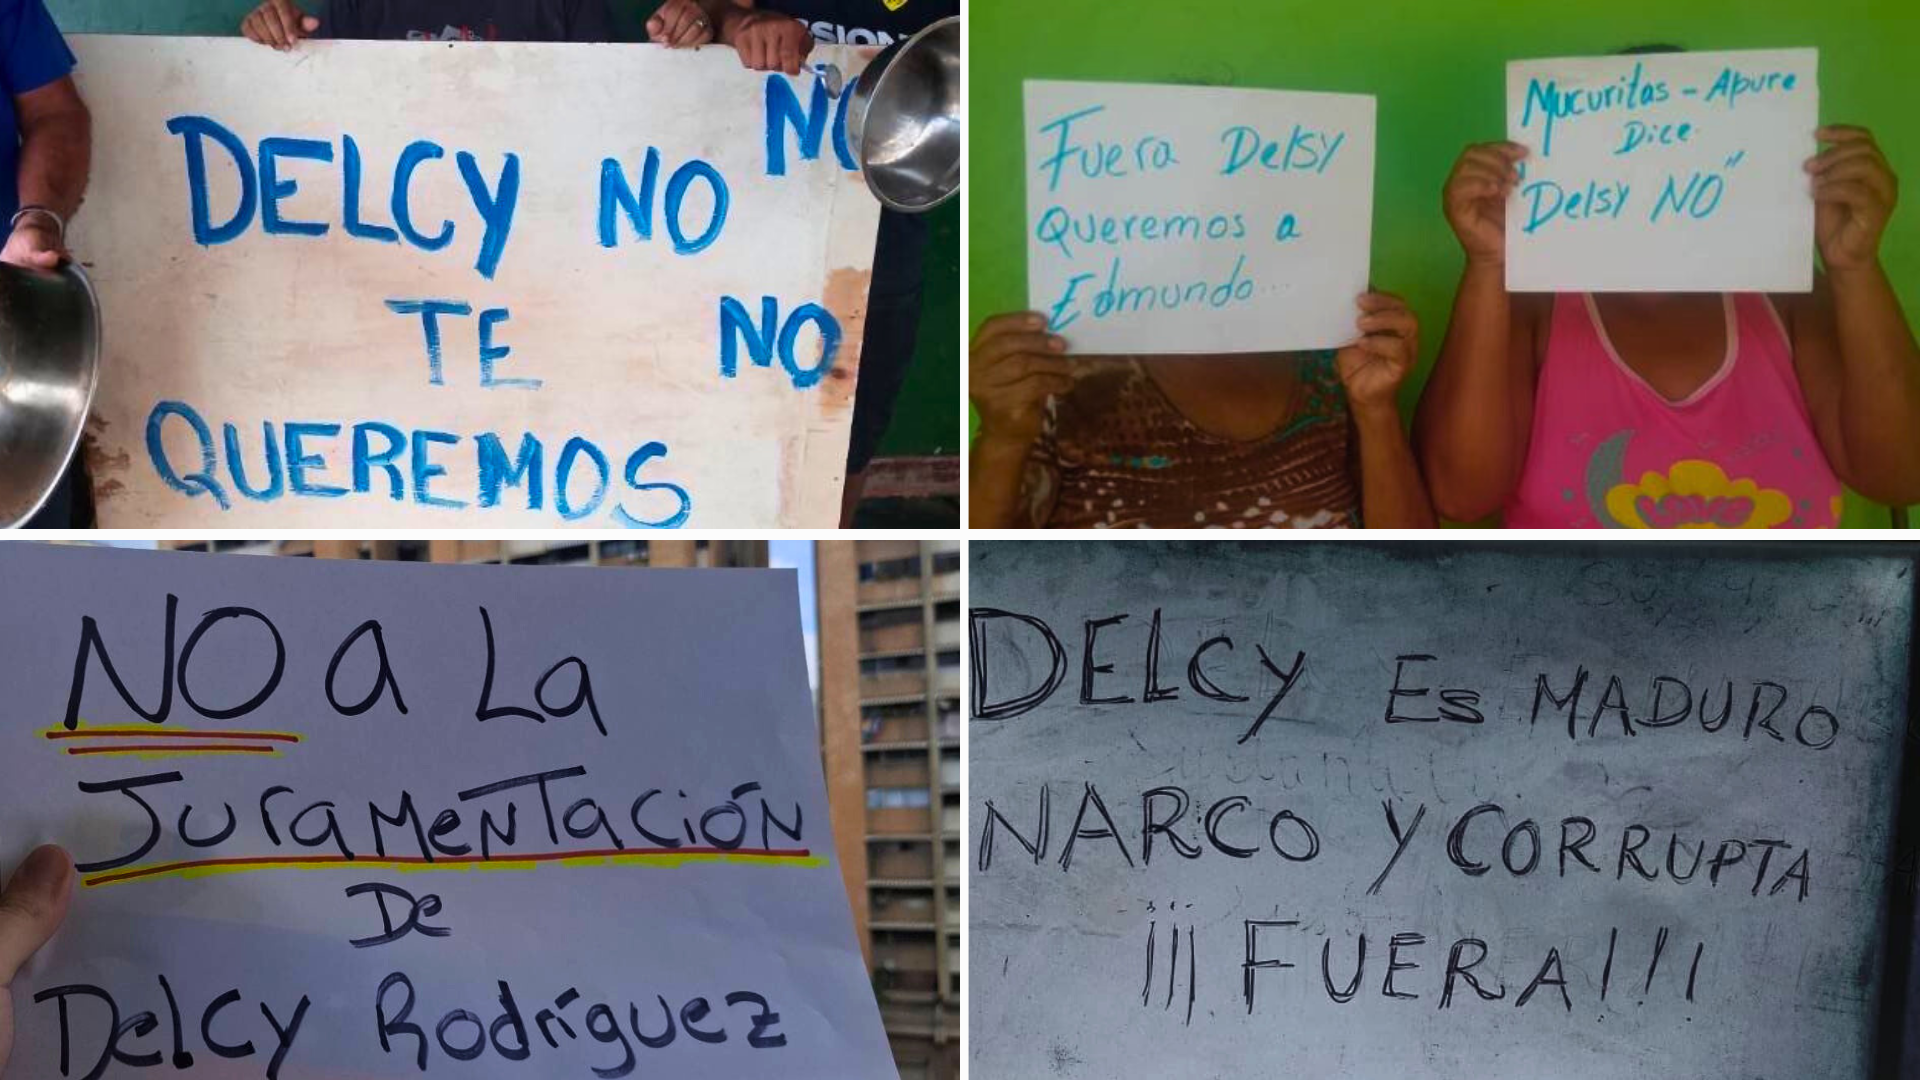 SION
DELCY NO NO
TE NO
QUEREMOS
Fuera Delsy
Queremos a
Edmundo...
Mucuritas - Apure
Dice
"Delsy NO"
LOVE
NO a La
Juramentación
De
Delcy Rodríguez
DELCY Es MADURO
NARCO Y CORRUPTA
¡¡¡FUERA!!!